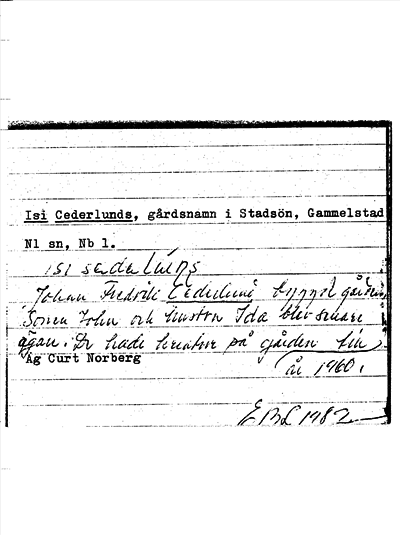 Isì Cederlunds, gårdsnamn i Stadsön, Gammelstad
Nl sn, Nb l.
isi sedalúns
Johan Fredrik Cederlund byggde gården
Sonen John och hustrun Ida blev senare
ägare. De hade kreatur på gården till
Ag Curt Norberg
år 1960.
EBL 1982